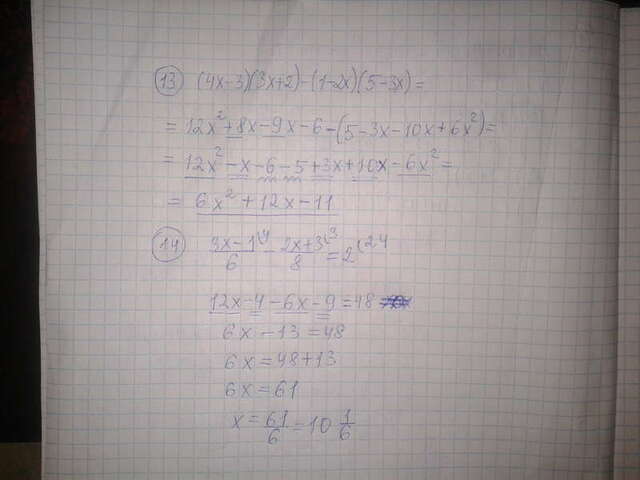 13 (4x-3)(3x+2)-(1-2x)(5-3x)=
= 12x²+8x-9x-6-(5-3x-10x+6x²)=
= 12x²-x-6-5+3x+10x-6x²=
= 6x²+12x-11
14 (3x-1)/6 \4 - (2x+3)/8 \3 = 2 \24
12x-4-6x-9=48
6x-13=48
6x=48+13
6x=61
x=61/6=10 1/6